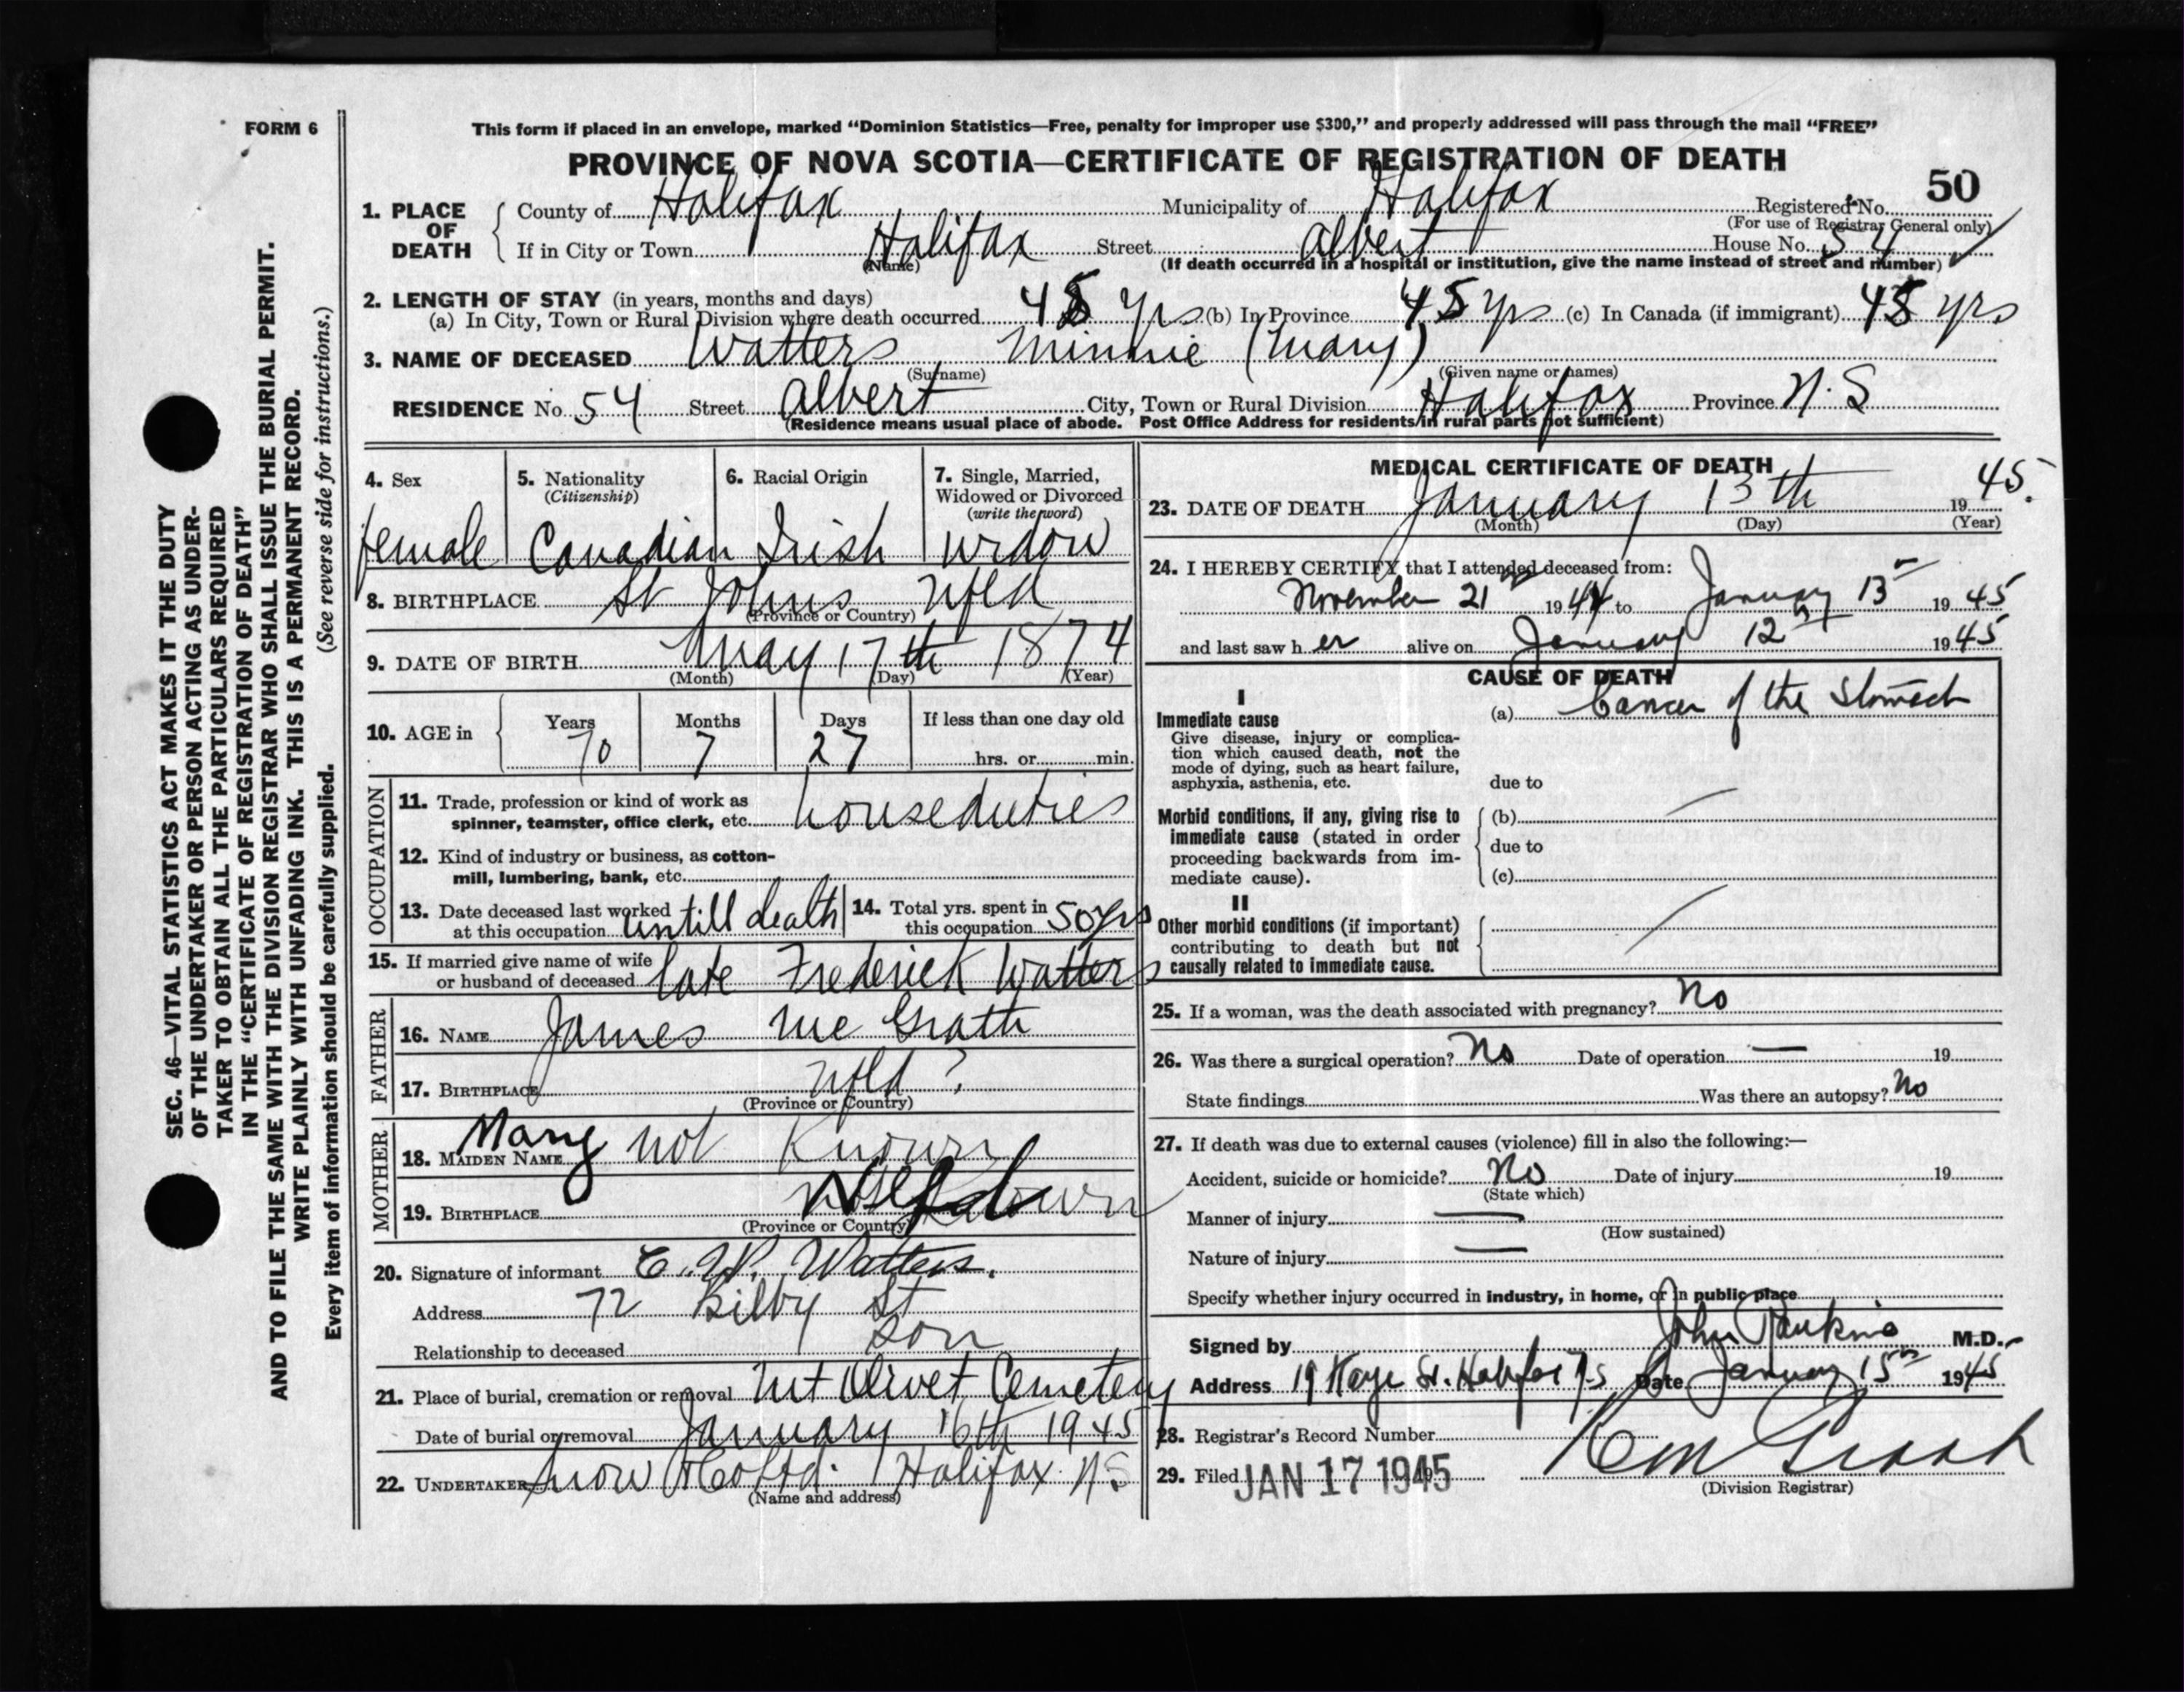 FORM 6
This form if placed in an envelope, marked “Dominion Statistics—Free, penalty for improper use $300,” and properly addressed will pass through the mail “FREE”
PROVINCE OF NOVA SCOTIA—CERTIFICATE OF REGISTRATION OF DEATH
50
1. PLACE OF DEATH County of Halifax Municipality of Halifax Registered No.
(For use of Registrar General only)
If in City or Town Halifax Street Albert House No. 54
(Name) (If death occurred in a hospital or institution, give the name instead of street and number)
2. LENGTH OF STAY (in years, months and days)
(a) In City, Town or Rural Division where death occurred 45 yrs (b) In Province 45 yrs (c) In Canada (if immigrant) 45 yrs
3. NAME OF DECEASED Watters, Minnie (Mary)
(Surname) (Given name or names)
RESIDENCE No. 54 Street Albert City, Town or Rural Division Halifax Province N.S
(Residence means usual place of abode. Post Office Address for residents in rural parts not sufficient)
4. Sex 5. Nationality 6. Racial Origin 7. Single, Married,
(Citizenship) Widowed or Divorced
(write the word)
female Canadian Irish widow
8. BIRTHPLACE St Johns Nfld
(Province or Country)
9. DATE OF BIRTH May 17th 1874
(Month) (Day) (Year)
10. AGE in Years Months Days If less than one day old
70 7 27 hrs. or min.
OCCUPATION
11. Trade, profession or kind of work as
spinner, teamster, office clerk, etc. houseduties
12. Kind of industry or business, as cotton-
mill, lumbering, bank, etc.
13. Date deceased last worked
at this occupation untill death
14. Total yrs. spent in
this occupation 50 yrs
15. If married give name of wife
or husband of deceased late Frederick Watters
FATHER
16. NAME James Mc Grath
17. BIRTHPLACE Nfld ?
(Province or Country)
MOTHER
18. MAIDEN NAME Mary not Known
19. BIRTHPLACE Nfld
(Province or Country)
20. Signature of informant C. W. Watters.
Address 72 Kilby St
Relationship to deceased son
21. Place of burial, cremation or removal Mt Olivet Cemetery
Date of burial or removal January 16th 1945
22. UNDERTAKER Snow & Co Ltd. Halifax N.S
(Name and address)
MEDICAL CERTIFICATE OF DEATH
23. DATE OF DEATH January 13th 1945.
(Month) (Day) (Year)
24. I HEREBY CERTIFY that I attended deceased from:
November 21 1944 to January 13 1945
and last saw her alive on January 12 1945
CAUSE OF DEATH
I
Immediate cause
Give disease, injury or complica-
tion which caused death, not the
mode of dying, such as heart failure,
asphyxia, asthenia, etc.
(a) Cancer of the Stomach
due to
Morbid conditions, if any, giving rise to
immediate cause (stated in order
proceeding backwards from im-
mediate cause).
(b)
due to
(c)
II
Other morbid conditions (if important)
contributing to death but not
causally related to immediate cause.
25. If a woman, was the death associated with pregnancy? No
26. Was there a surgical operation? No Date of operation — 19
State findings Was there an autopsy? No
27. If death was due to external causes (violence) fill in also the following:—
Accident, suicide or homicide? No Date of injury 19
(State which)
Manner of injury —
(How sustained)
Nature of injury —
Specify whether injury occurred in industry, in home, or in public place
Signed by John Rankine M.D.
Address 19 Kaye St. Halifax N.S Date January 15th 1945
28. Registrar's Record Number
29. Filed JAN 17 1945
(Division Registrar)
SEC. 46—VITAL STATISTICS ACT MAKES IT THE DUTY
OF THE UNDERTAKER OR PERSON ACTING AS UNDER-
TAKER TO OBTAIN ALL THE PARTICULARS REQUIRED
IN THE “CERTIFICATE OF REGISTRATION OF DEATH”
AND TO FILE THE SAME WITH THE DIVISION REGISTRAR WHO SHALL ISSUE THE BURIAL PERMIT.
WRITE PLAINLY WITH UNFADING INK. THIS IS A PERMANENT RECORD.
Every item of information should be carefully supplied. (See reverse side for instructions.)